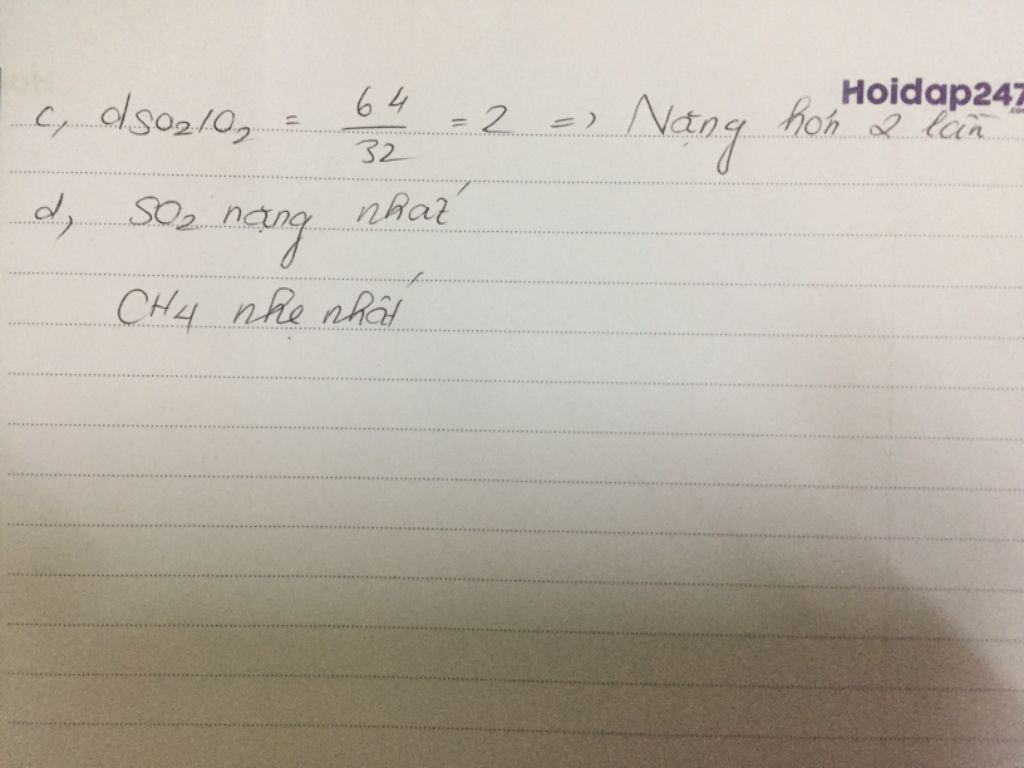 Hoidap247
.com
c, dSO₂/O₂ = 64/32 = 2 => Nặng hơn 2 lần
d, SO₂ nặng nhất
CH4 nhẹ nhất